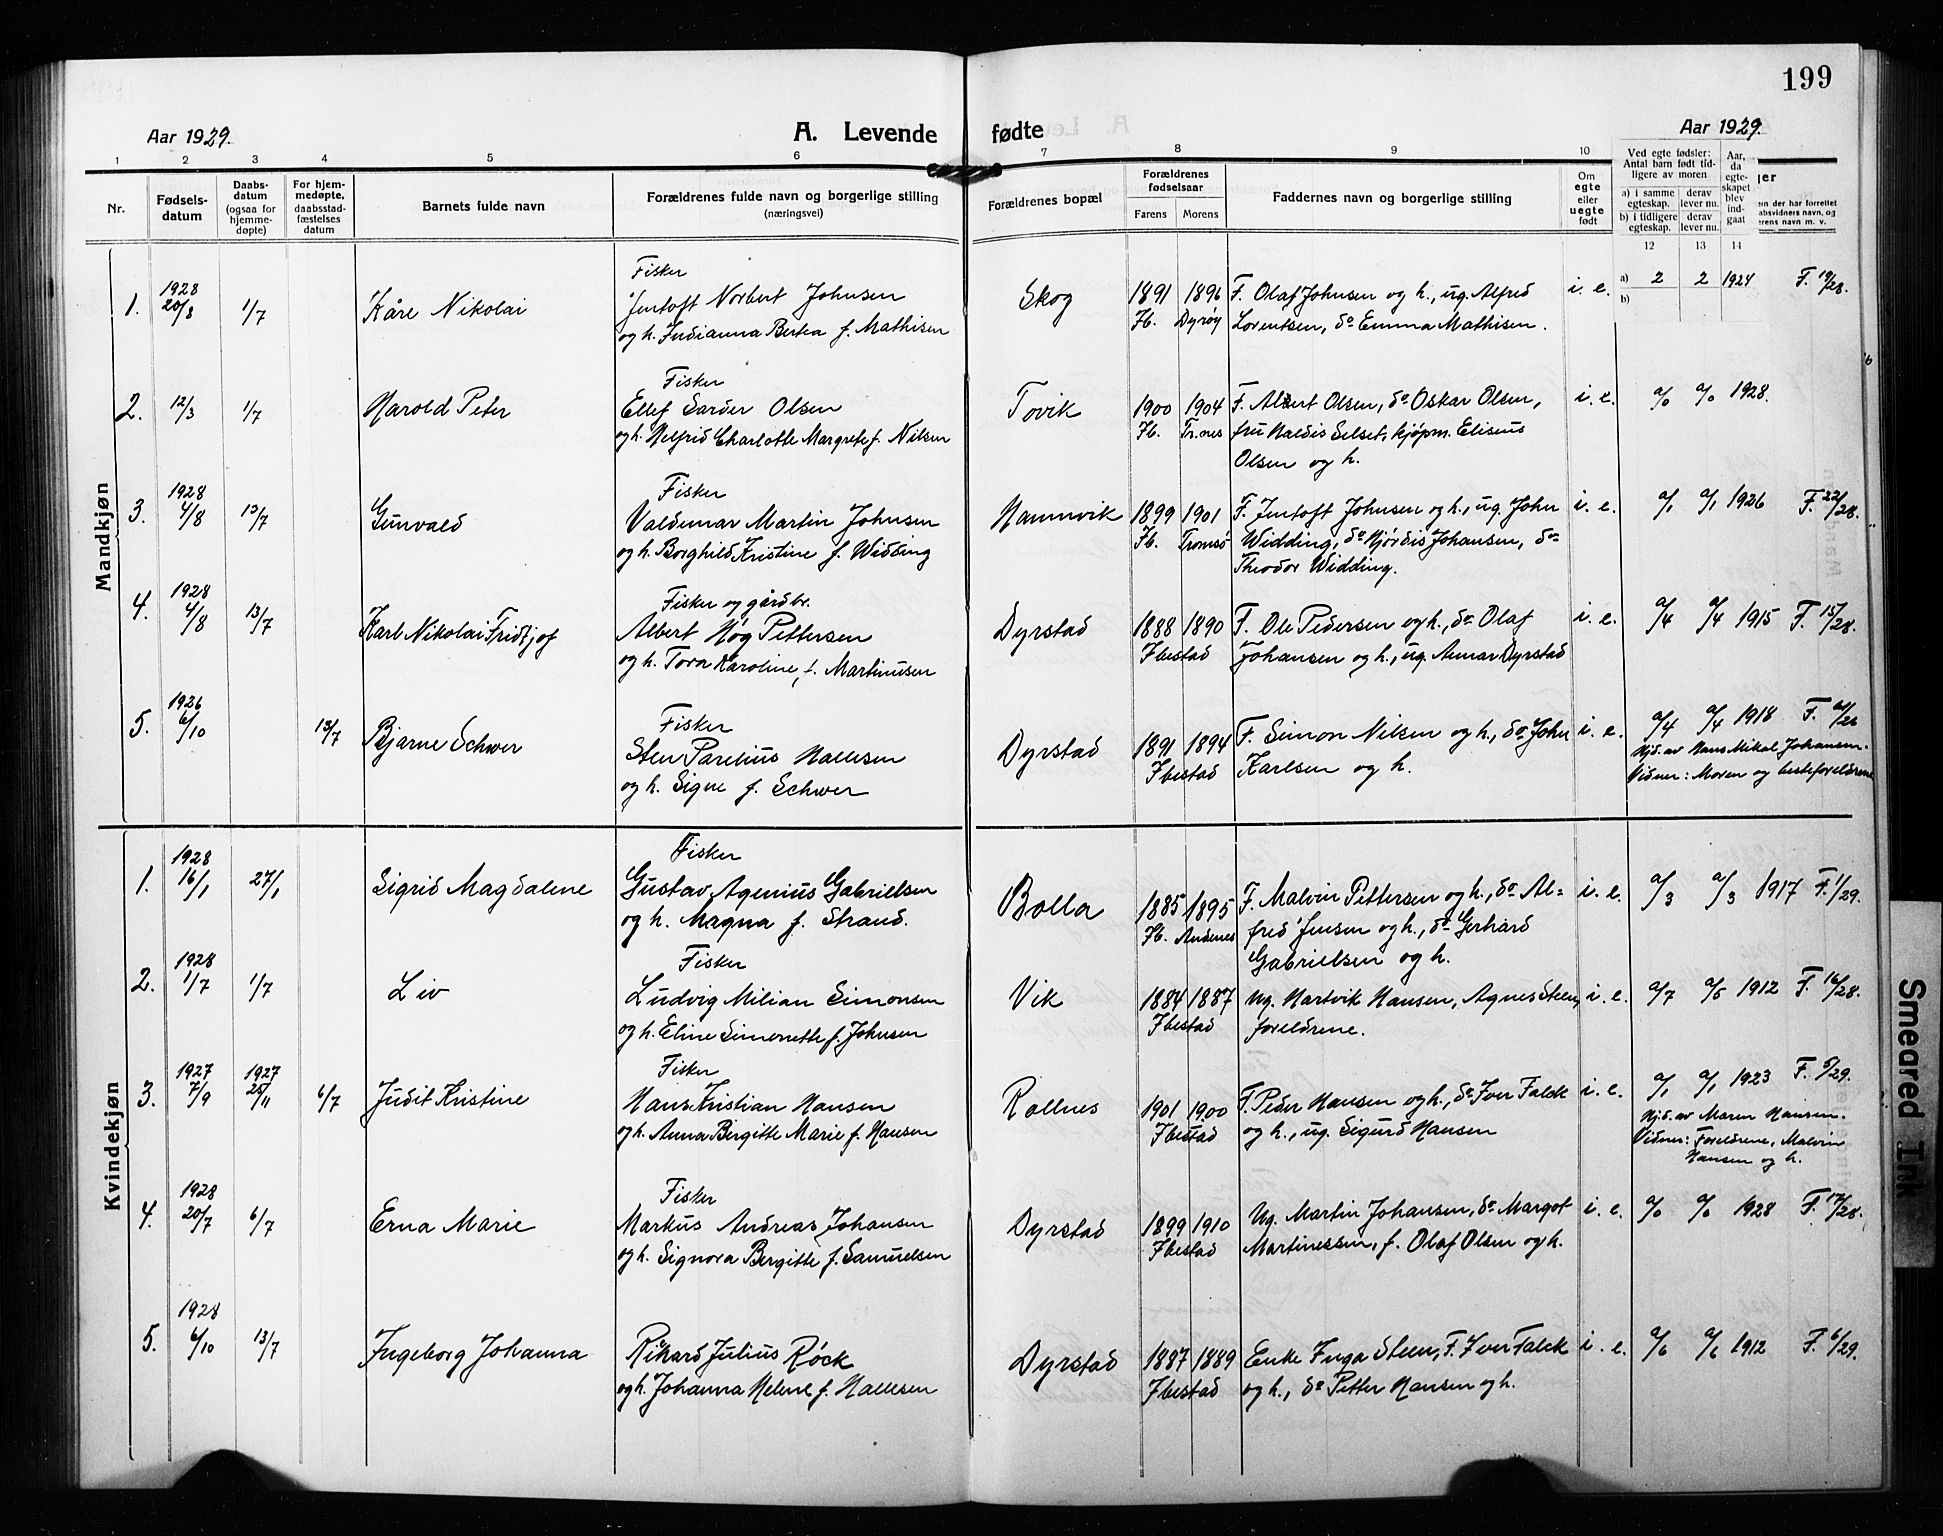 199
Aar 1929.
A. Levende fødte
Aar 1929.
1 2 3 4 5 6 7 8 9 10
Nr.
Fødsels-
datum
Daabs-
datum
(ogsaa for
hjemme-
døpte)
For hjem-
medøpte,
daabsstad-
fæstelses
datum
Barnets fulde navn
Forældrenes fulde navn og borgerlige stilling
(næringsvei)
Forældrenes bopæl
Forældrenes
fødselsaar
Farens Morens
Faddernes navn og borgerlige stilling
Om
egte
eller
uegte
født
Ved egte fødsler:
Antal barn født tid-
ligere av moren
a) i samme
egteskap.
b) i tidligere
egteskap.
derav
lever nu.
derav
lever nu.
Aar,
da
egte-
skapet
blev
ind-
gaat
12 13 14
Mandkjøn
1. 1928 20/8 1/7 Kåre Nikolai
Fisker
Jentoft Norbert Johnsen
og h. Indianna Berta f. Mathisen
Skog
1891 1896
Ib. Dyrøy
F. Olaf Johnsen og h., ug. Alfred
Lorentsen, do Emma Mathisen.
i. e. a) 2 2 1924 F. 19/28.
b)
2. 12/3 1/7 Harold Peter
Fisker
Ellef Sarder Olsen
og h. Helfrid Charlotte Margrete f. Nilsen
Tovik
1900 1904
Ib. Tr.nes
F. Albert Olsen, do Oskar Olsen,
fru Haldis Selset, kjøpm. Eliseus
Olsen og h.
i. e. a/0 a/0 1928.
3. 1928 4/8 13/7 Gunvald
Fisker
Valdemar Martin Johnsen
og h. Borghild Kristine f. Widding
Hamnvik
1899 1901
Ib. Tromsø
F. Jentoft Johnsen og h., ug. John
Widding, do Hjørdis Johansen, do
Theodor Widding.
i. e. a/1 a/1 1926 F. 22/28.
4. 1928 4/8 13/7 Karl Nikolai Fridtjof
Fisker og gårdbr.
Albert Høg Pettersen
og h. Tora Karoline, f. Martinusen
Dyrstad
1888 1890
Ibestad
F. Ole Pedersen og h., do Olaf
Johansen og h., ug. Annar Dyrstad
i. e. a/4 a/4 1915 F. 15/28.
5. 1926 6/10 13/7 Bjarne Schwer
Fisker
Sten Parelius Hallesen
og h. Signe f. Schwer
Dyrstad
1891 1894
Ibestad
F. Simon Nilsen og h., do John
Karlsen og h.
i. e. a/4 a/4 1918 F.
Hjd. av Hans Mikal Johansen.
Vidner: Moren og besteforeldrene
Kvindekjøn
1. 1928 16/1 27/1 Sigrid Magdalene
Fisker
Gustav Agenius Gabrielsen
og h. Magna f. Strand.
Bolla
1885 1895
Ib. Andenes
F. Malvin Pettersen og h., do Al=
fred Jensen og h., do Gerhard
Gabrielsen og h.
i. e. a/3 a/3 1917 F. 1/29.
2. 1928 1/7 1/7 Liv
Fisker
Ludvig Milian Simonsen
og h. Eline Simonette f. Johnsen
Vik
1884 1887
Ibestad
Ug. Hartvik Hansen, Agnes Steen,
foreldrene.
i. e. a/7 a/5 1912 F. 16/28.
3. 1927 7/9 1927 25/11 6/7 Judit Kristine
Fisker
Hans Kristian Hansen
og h. Anna Bergitte Marie f. Hansen
Rollnes
1901 1900
Ibestad
F. Peder Hansen og h., do Iver Falck
og h., ug. Sigurd Hansen
i. e. a/1 a/1 1923 F. 5/29.
Hjd. av Maren Hansen.
Vidner: Foreldrene, Malvin
Hansen og h.
4. 1928 20/7 6/7 Erna Marie
Fisker
Markus Andreas Johansen
og h. Signora Bergitte f. Samuelsen
Dyrstad
1899 1910
Ibestad
Ug. Martin Johansen, do Margot
Martinessen, f. Olaf Olsen og h.
i. e. a/0 a/0 1928 F. 17/28.
5. 1928 6/10 13/7 Ingeborg Johanna
Rikard Julius Røck
og h. Johanna Helene f. Hallesen
Dyrstad
1887 1889
Ibestad
Enke Inga Steen, F. Iver Falck
og h., do Petter Hansen og h.
i. e. a/6 a/6 1912 F. 6/29.
Smeared Ink